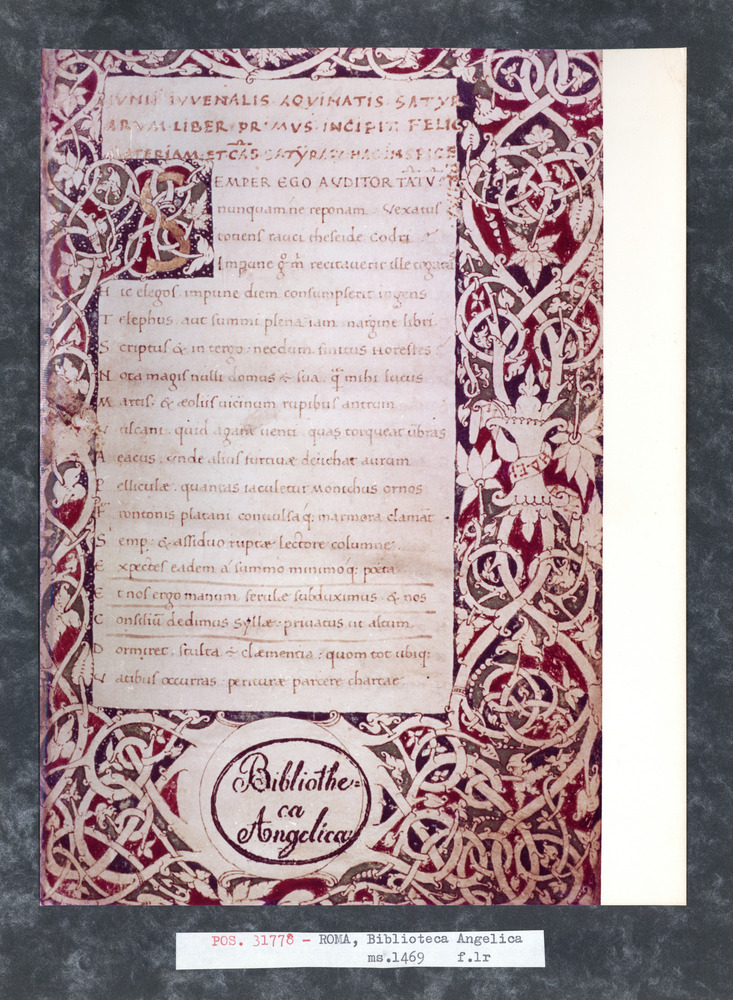 IVNII IVVENALIS AQVINATIS SATYR
ARVM LIBER PRIMVS INCIPIT FELIC
MATERIAM ET
SEMPER EGO AVDITOR TATV̄
nunquam ne reponam Vexatus
totiens rauci theseide Codri
Impune g̊ m̄ recitauerit ille togatas
Hic elegos impune diem consumpserit ingens
Telephus aut summi plena iam margine libri
Scriptus & in tergo necdum finitus Horestes
Nota magis nulli domus ē sua q̄ mihi lucus
Martis & æoliis uicinum rupibus antrum
Vulcani quid agant uenti quas torqueat ūbras
Aeacus unde alius furtiuæ deuehat aurum
Pelliculæ quantas iaculetur Monichus ornos
Frontonis platani conuulsaq; marmora clamāt
Semp & assiduo ruptæ lectore columnę
Expectes eadem a summo minimoq; poeta
Et nos ergo manum ferulæ subduximus & nos
Consiliū dedimus Syllæ priuatus ut altum
Dormiret stulta ē clæmentia quom tot ubiq;
Vatibus occurras perituræ parcere chartae
Bibliothe=
ca
Angelica
POS. 31778 - ROMA, Biblioteca Angelica
ms.1469 f.1r